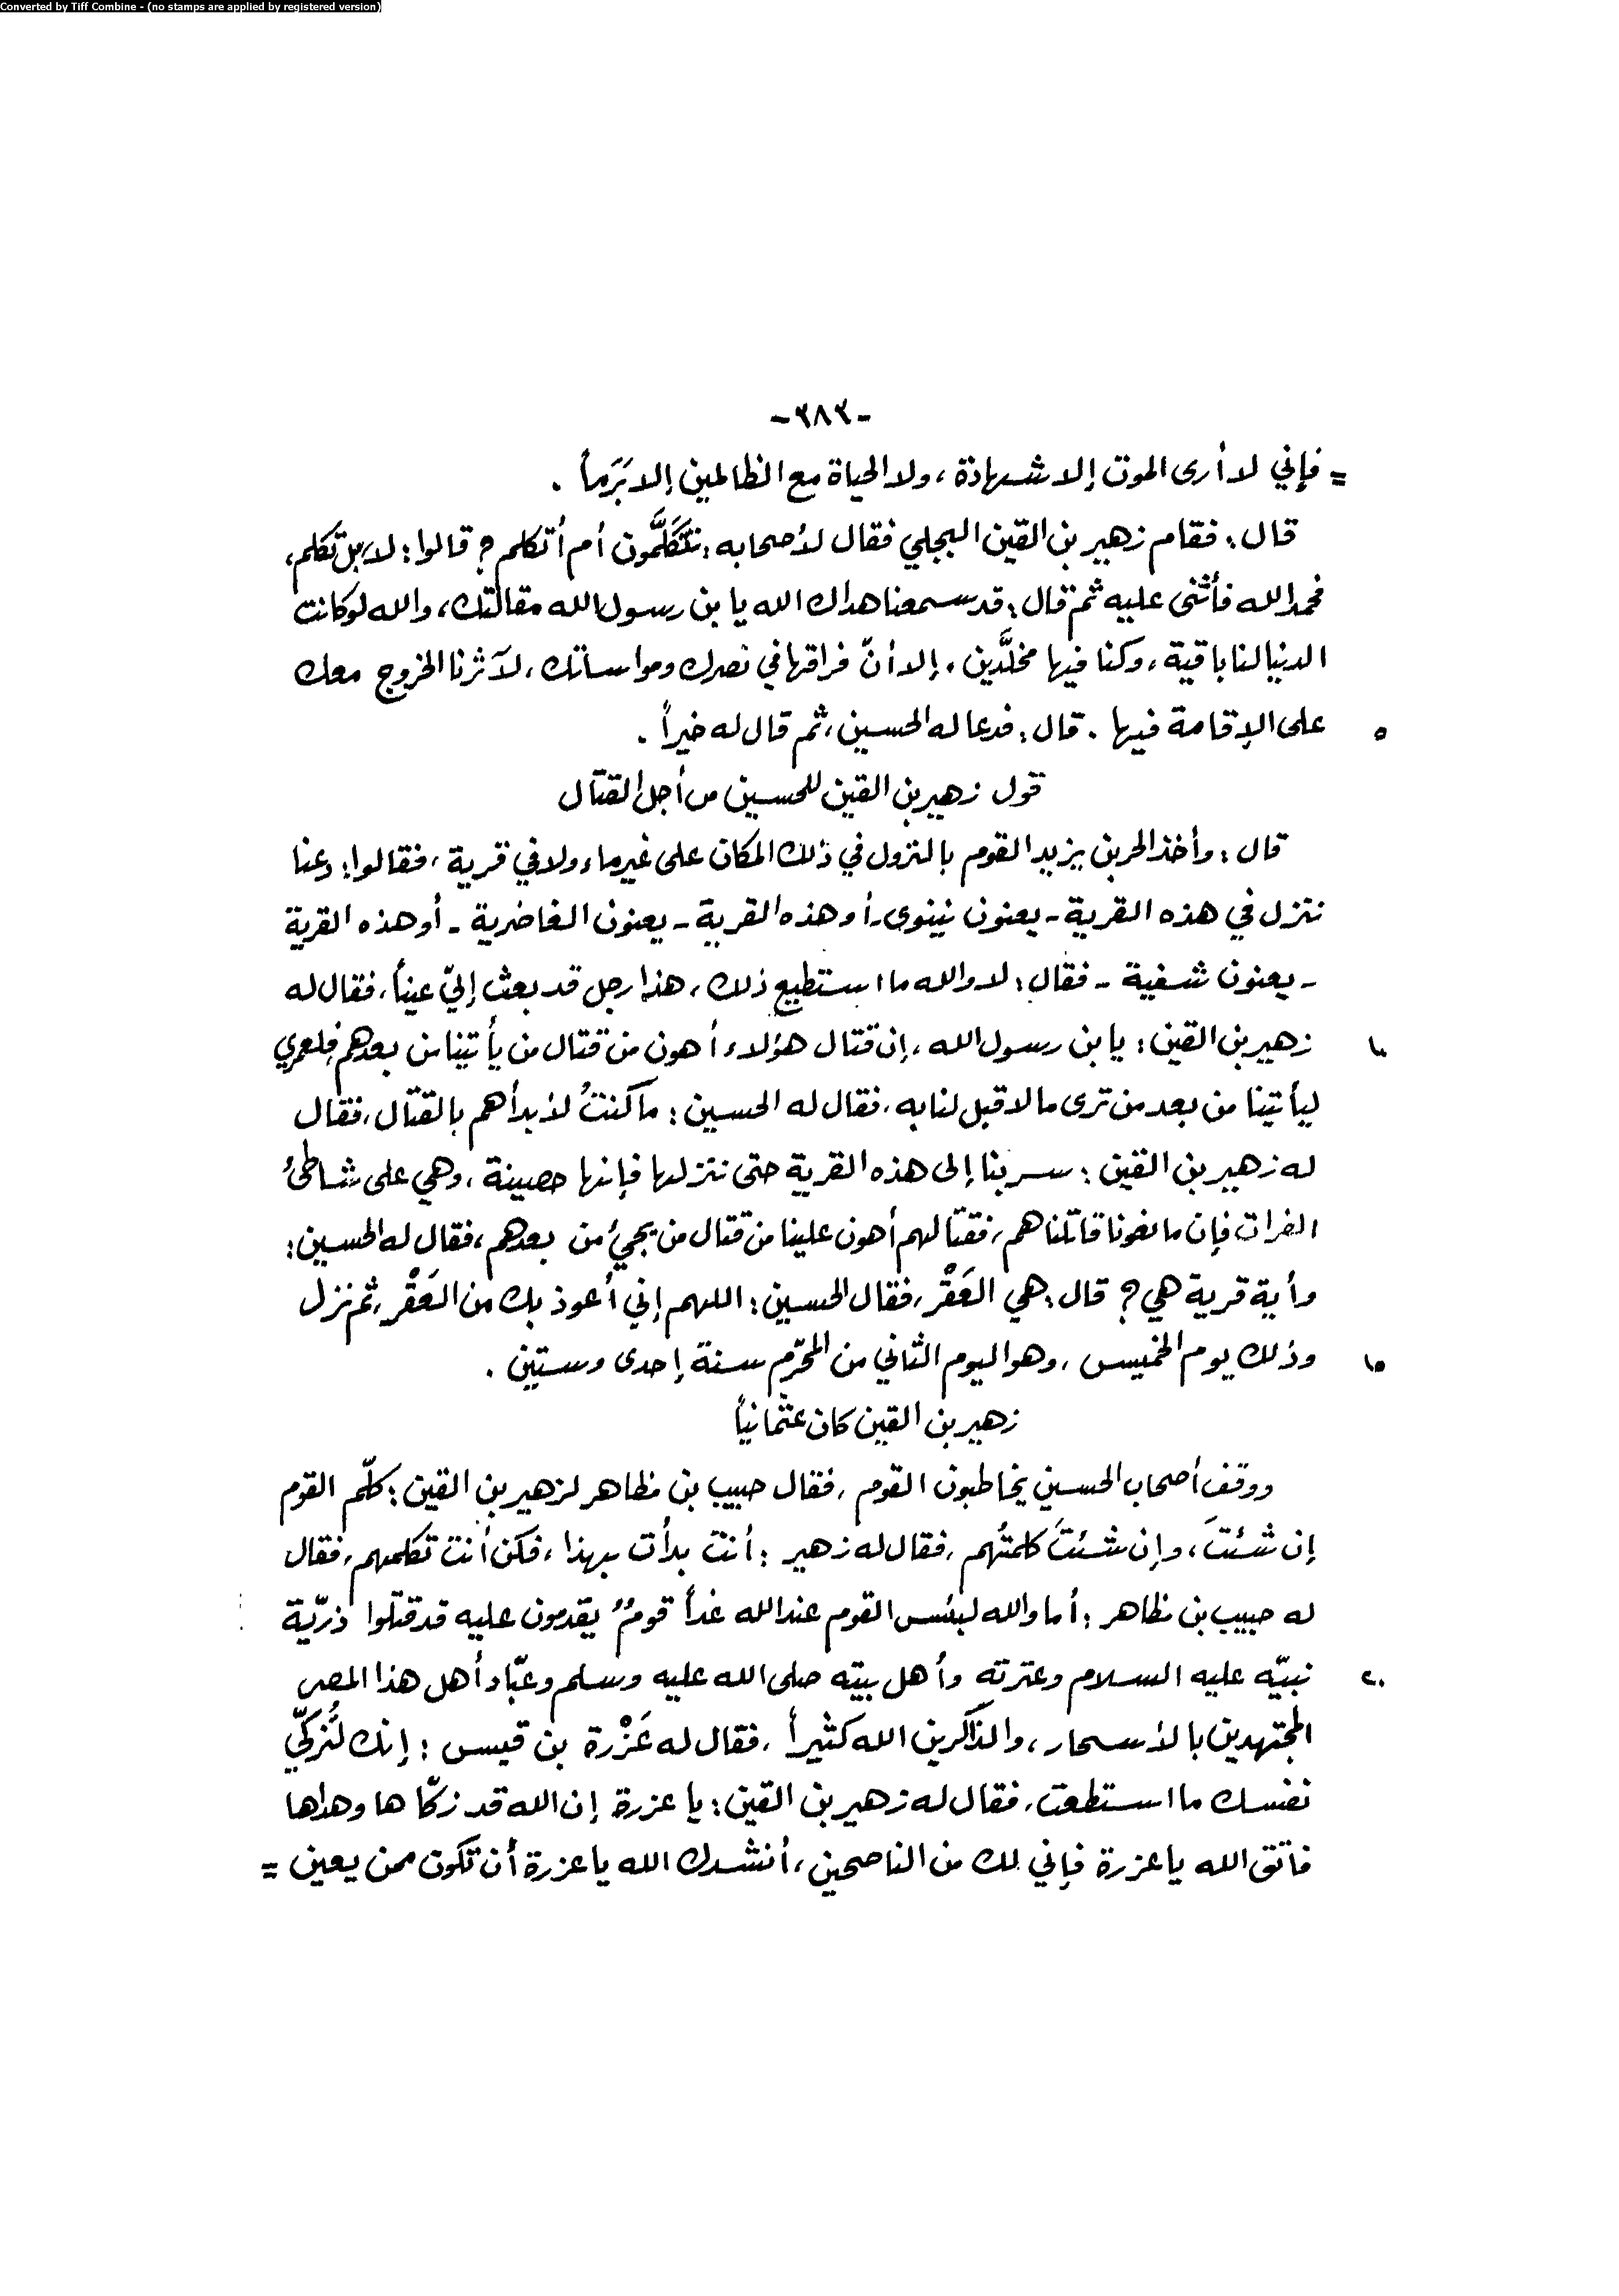 Converted by Tiff Combine - (no stamps are applied by registered version)
-٣٨٣-
= فإني لا أرى الموت إلا شهادة، ولا الحياة مع الظالمين إلا بَرَماً .
قال: فقام زهير بن القين البجلي فقال لأصحابه: تتكَلَّمون أم أتكلم؟ قالوا: لا، بل تكلم،
فحمد الله فأثنى عليه ثم قال: قد سمعنا هداك الله يا بن رسول الله مقالتك، والله لو كانت
الدنيا لنا باقية، وكنا فيها مخلَّدين، إلا أنّ فراقها في نصرك ومواساتك، لآثرنا الخروج معك
٥ على الإقامة فيها . قال: فدعا له الحسين، ثم قال له خيراً .
قول زهير بن القين للحسين من أجل القتال
قال: وأخذ الحر بن يزيد القوم بالنزول في ذلك المكان على غير ماء ولا في قرية، فقالوا: دعنا
ننزل في هذه القرية - يعنون نينوى - أو هذه القرية - يعنون الغاضرية - أو هذه القرية
- يعنون شفية - فقال: لا والله ما استطيع ذلك، هذا رجل قد بعث إليّ عيناً، فقال له
١٠ زهير بن القين: يا بن رسول الله، إن قتال هؤلاء أهون من قتال من يأتينا من بعدهم، فلعمري
ليأتينا من بعد من ترى ما لا قبل لنا به، فقال له الحسين: ما كنتُ لأبدأهم بالقتال، فقال
له زهير بن القين: سر بنا إلى هذه القرية حتى ننزلها فإنها حصينة، وهي على شاطئ
الفرات فإن مانعونا قاتلناهم، فقتالهم أهون علينا من قتال من يجيُ من بعدهم، فقال له الحسين:
وأية قرية هي؟ قال: هي العَقْر، فقال الحسين: اللهم إني أعوذ بك من العَقْر، ثم نزل
١٥ وذلك يوم الخميس، وهو اليوم الثاني من المحرّم سنة إحدى وستين .
زهير بن القين كان عثمانياً
ووقف أصحاب الحسين يخاطبون القوم، فقال حبيب بن مظاهر لزهير بن القين: كلّم القوم
إن شئتَ، وإن شئتَ كلمتُهم، فقال له زهير: أنت بدأت بهذا، فكن أنت تكلمهم، فقال
له حبيب بن مظاهر: أما والله لبئس القوم عند الله غداً قومٌ يقدمون عليه قد قتلوا ذرّية
٢٠ نبيّه عليه السلام وعترته وأهل بيته صلى الله عليه وسلم وعبّاد أهل هذا المصر
المجتهدين بالأسحار، والذاكرين الله كثيراً، فقال له عَزْرة بن قيس: إنك لتُزكّي
نفسك ما استطعت، فقال له زهير بن القين: يا عزرة إن الله قد زكّاها وهداها
فاتق الله يا عزرة فإني لك من الناصحين، أنشدك الله يا عزرة أن تكون ممن يعين =